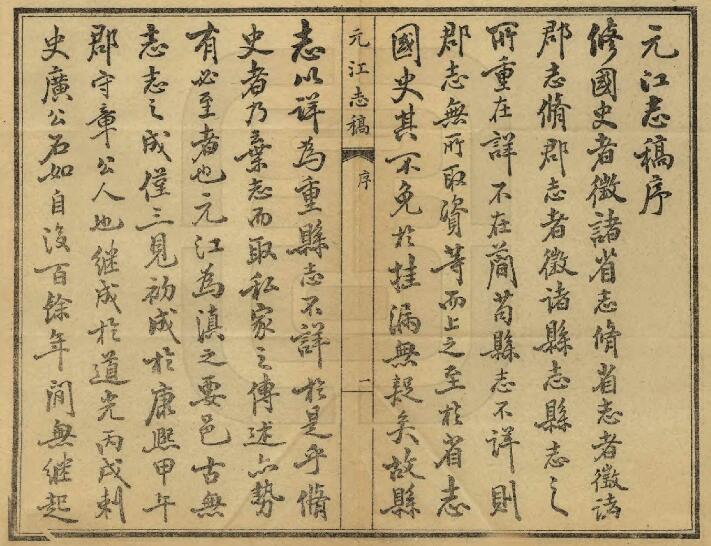 元江志稿序
修國史者徵諸省志脩省志者徵諸
郡志脩郡志者徵诸縣志縣志之
所重在詳不在簡苟縣志不詳則
郡志無所取資等而上之至於省志
國史其不免於挂漏無疑矣故縣
元江志稿
序
一
志以詳為重縣志不詳於是乎脩
史者乃棄志而取私家之傳述亦勢
有必至者也元江為滇之要邑古無
志志之成僅三見初成於康熙甲午
郡守章公人也继成於道光丙戌刺
史廣公石如自後百餘年間無继起